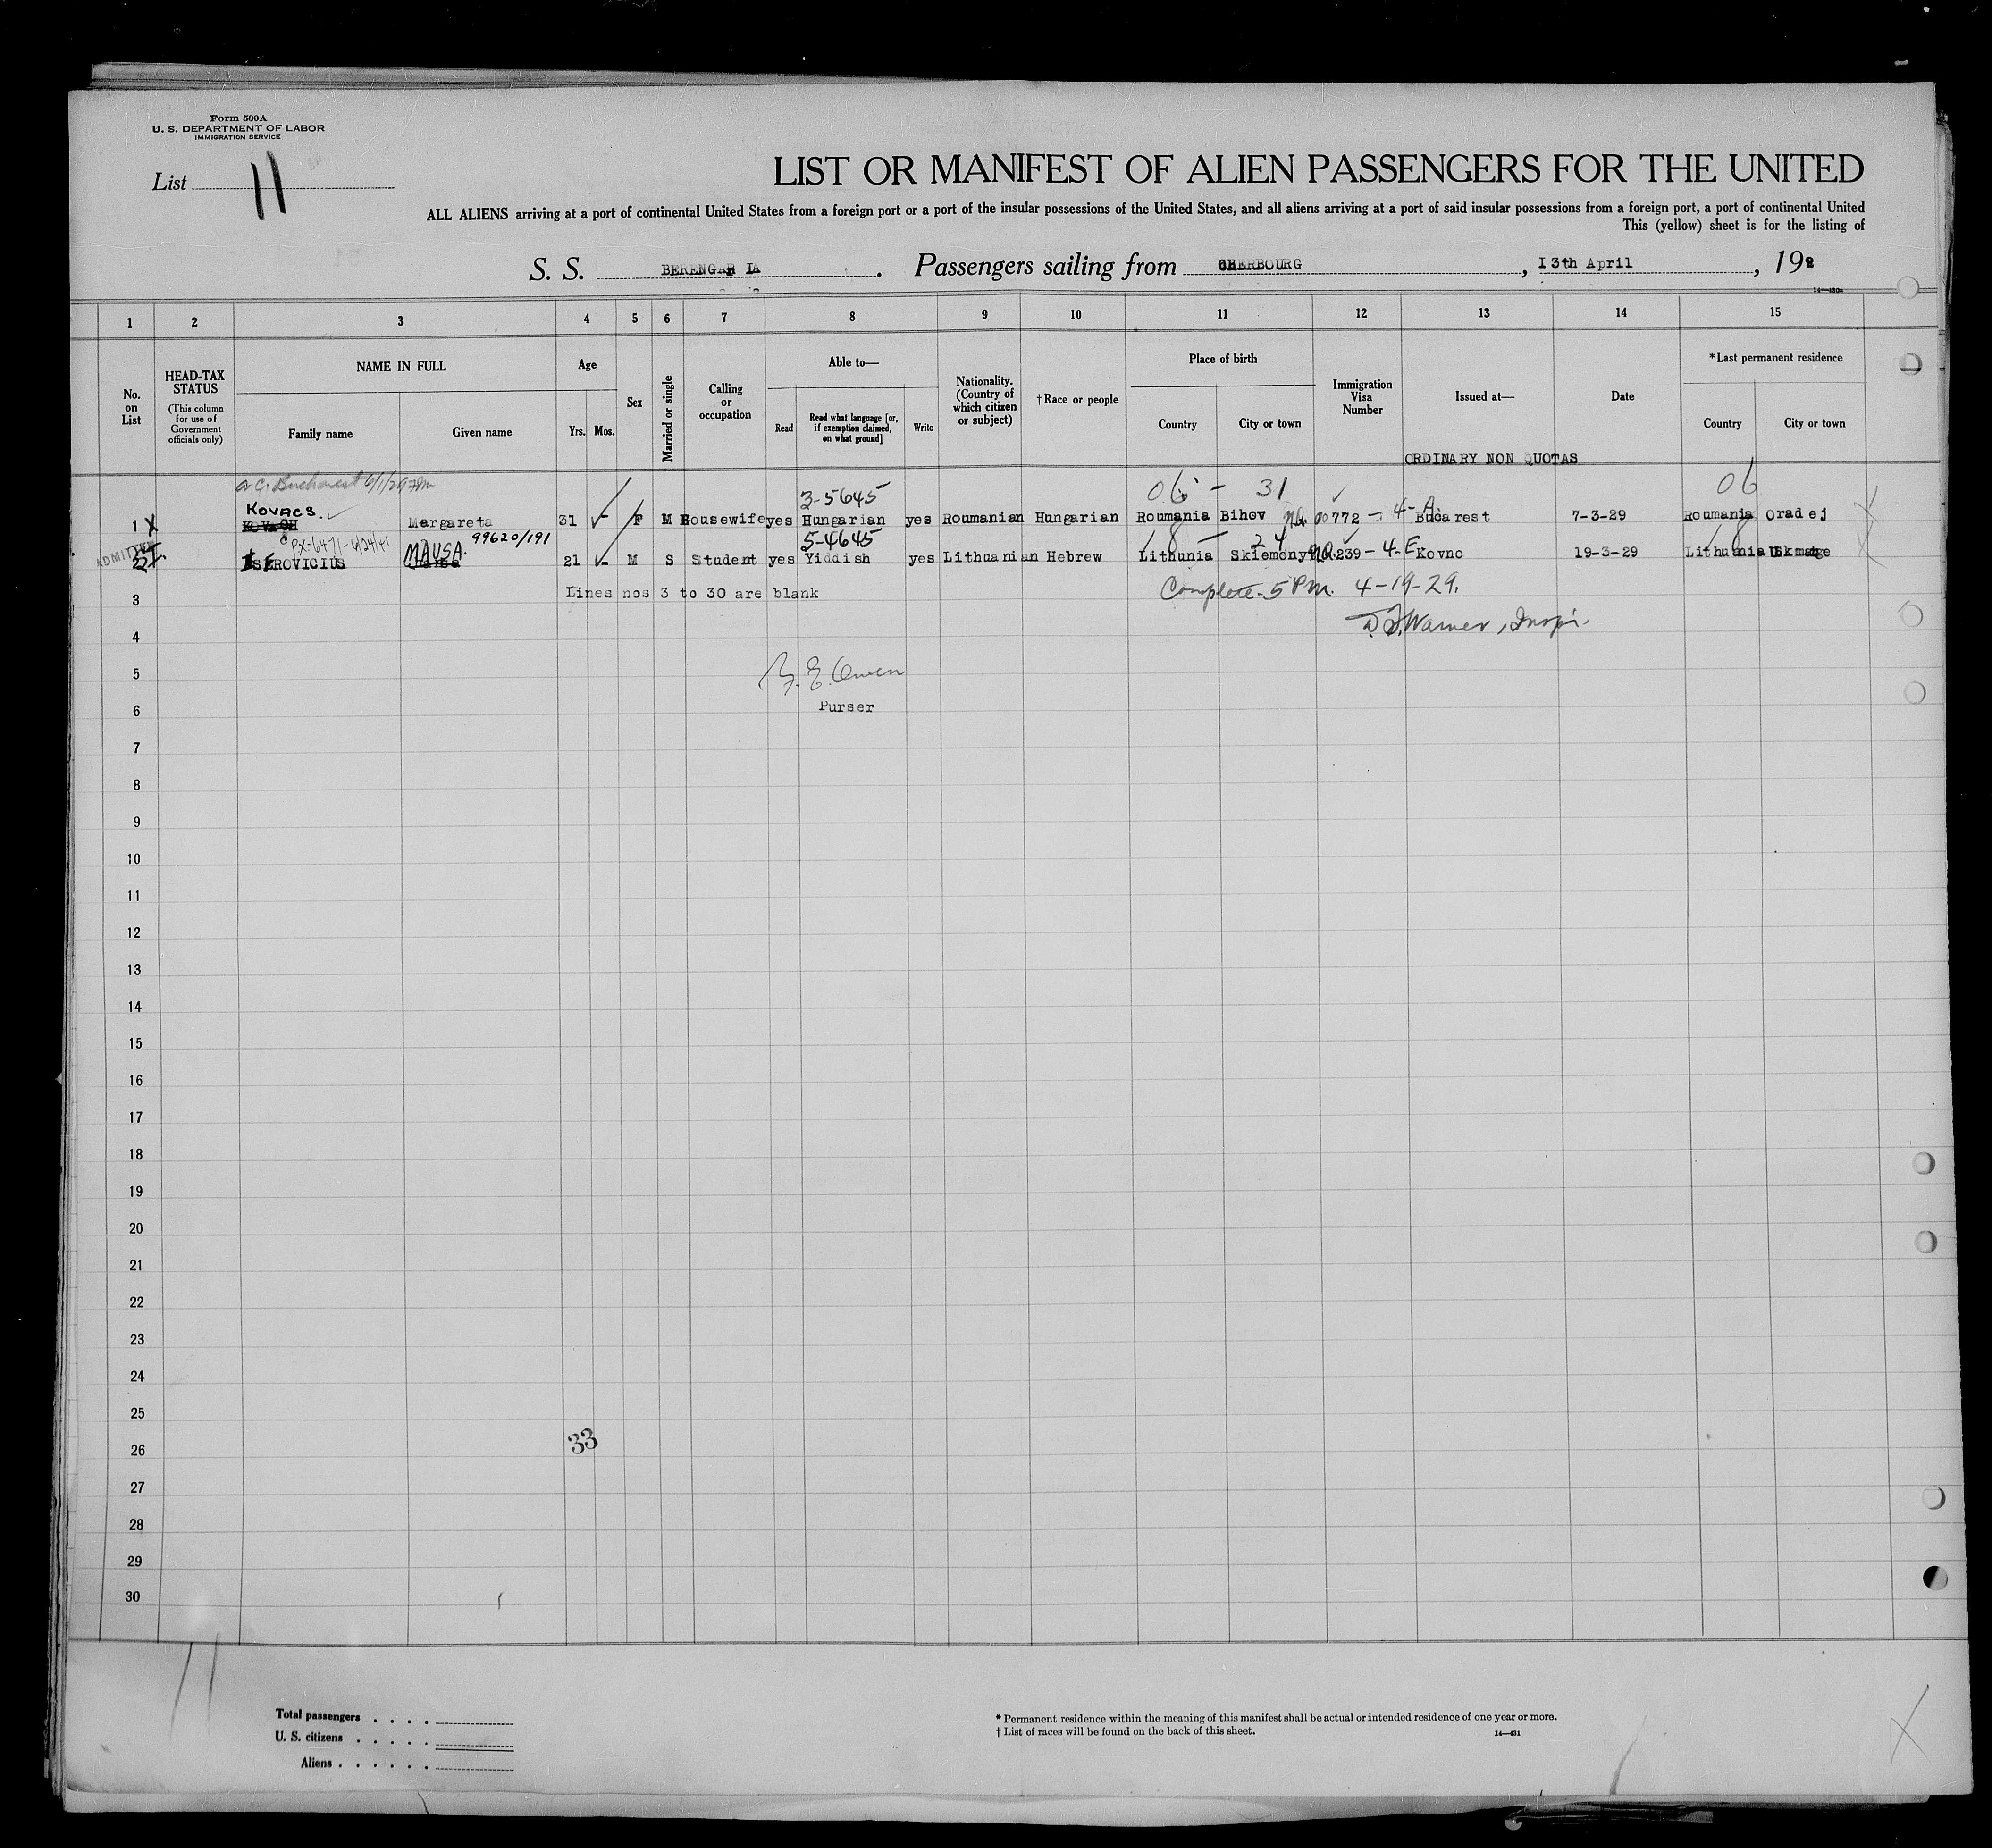 Form 500A
U. S. DEPARTMENT OF LABOR
IMMIGRATION SERVICE
List 11
LIST OR MANIFEST OF ALIEN PASSENGERS FOR THE UNITED
ALL ALIENS arriving at a port of continental United States from a foreign port or a port of the insular possessions of the United States, and all aliens arriving at a port of said insular possessions from a foreign port, a port of continental United
This (yellow) sheet is for the listing of
S. S. BERENGARIA . Passengers sailing from CHERBOURG , 13th April , 192
1 2 3 4 5 6 7 8 9 10 11 12 13 14 15
No. on List
HEAD-TAX STATUS
(This column for use of Government officials only)
NAME IN FULL
Family name Given name
Age
Yrs. Mos.
Sex
Married or single
Calling or occupation
Able to—
Read
Read what language [or, if exemption claimed, on what ground]
Write
Nationality. (Country of which citizen or subject)
†Race or people
Place of birth
Country City or town
Immigration Visa Number
Issued at—
Date
*Last permanent residence
Country City or town
ORDINARY NON QUOTAS
3-5645 06 - 31 06
KOVACS.
1 X Margareta 31 F M Housewife yes Hungarian yes Roumanian Hungarian Roumania Bihov 772 - 4-A Bucarest 7-3-29 Roumania Oradej
ADMITTED PX-6471- 99620/191 5-4645 18 - 24 18
MAUSA.
2 21 M S Student yes Yiddish yes Lithuanian Hebrew Lithunia Skiemony 239 - 4-E Kovno 19-3-29 Lithuania
3 Lines nos 3 to 30 are blank Complete. 5 PM. 4-19-29.
4 Warner, Inspr.
5 Owen
6 Purser
7
8
9
10
11
12
13
14
15
16
17
18
19
20
21
22
23
24
25
26 33
27
28
29
30
11
Total passengers . . . .
U. S. citizens . . . . .
Aliens . . . . . .
* Permanent residence within the meaning of this manifest shall be actual or intended residence of one year or more.
† List of races will be found on the back of this sheet. 14—431